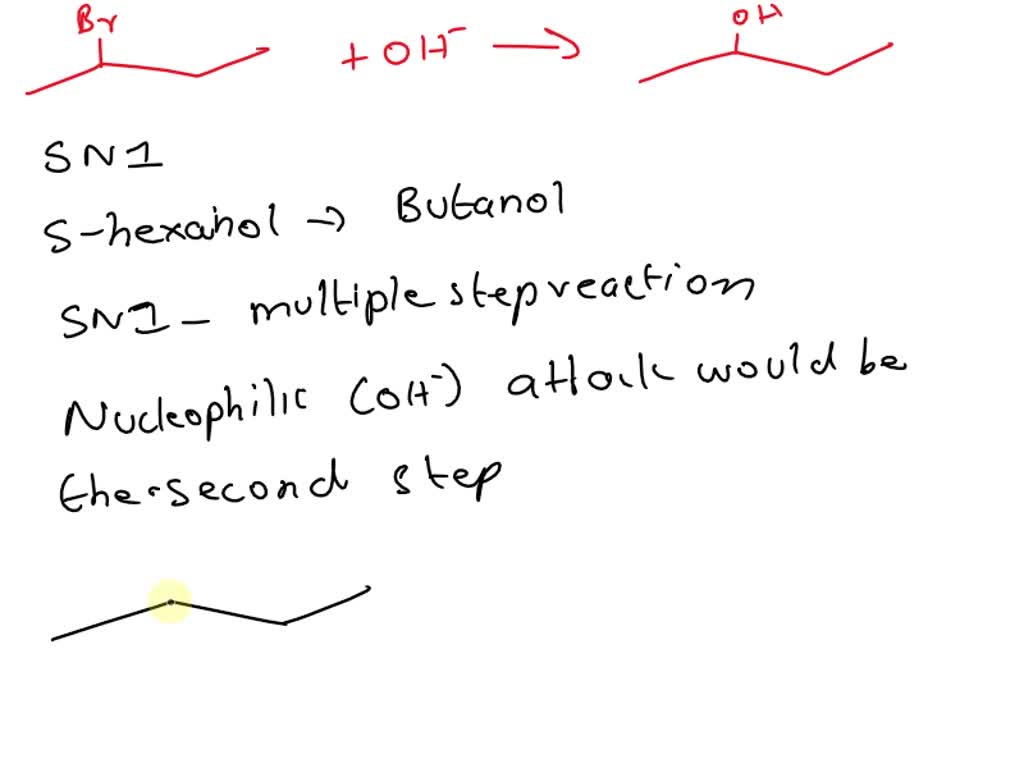 Br OH
+ OH⁻ →
SN1
S-hexanol → Butanol
SN1 - multiple step reaction
Nucleophilic (OH⁻) attack would be
the second step